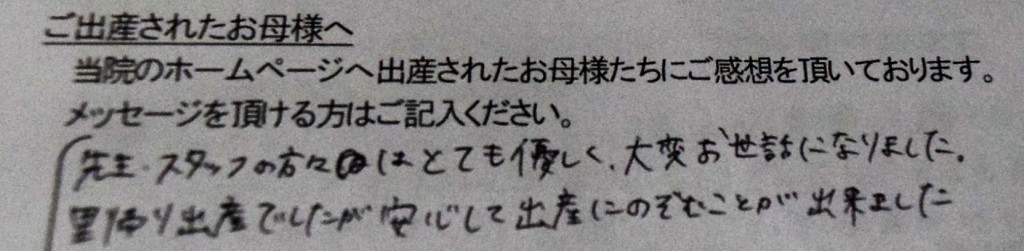 ご出産されたお母様へ
当院のホームページへ出産されたお母様たちにご感想を頂いております。
メッセージを頂ける方はご記入ください。
先生・スタッフの方々はとても優しく、大変お世話になりました。
里帰り出産でしたが安心して出産にのぞむことが出来ました